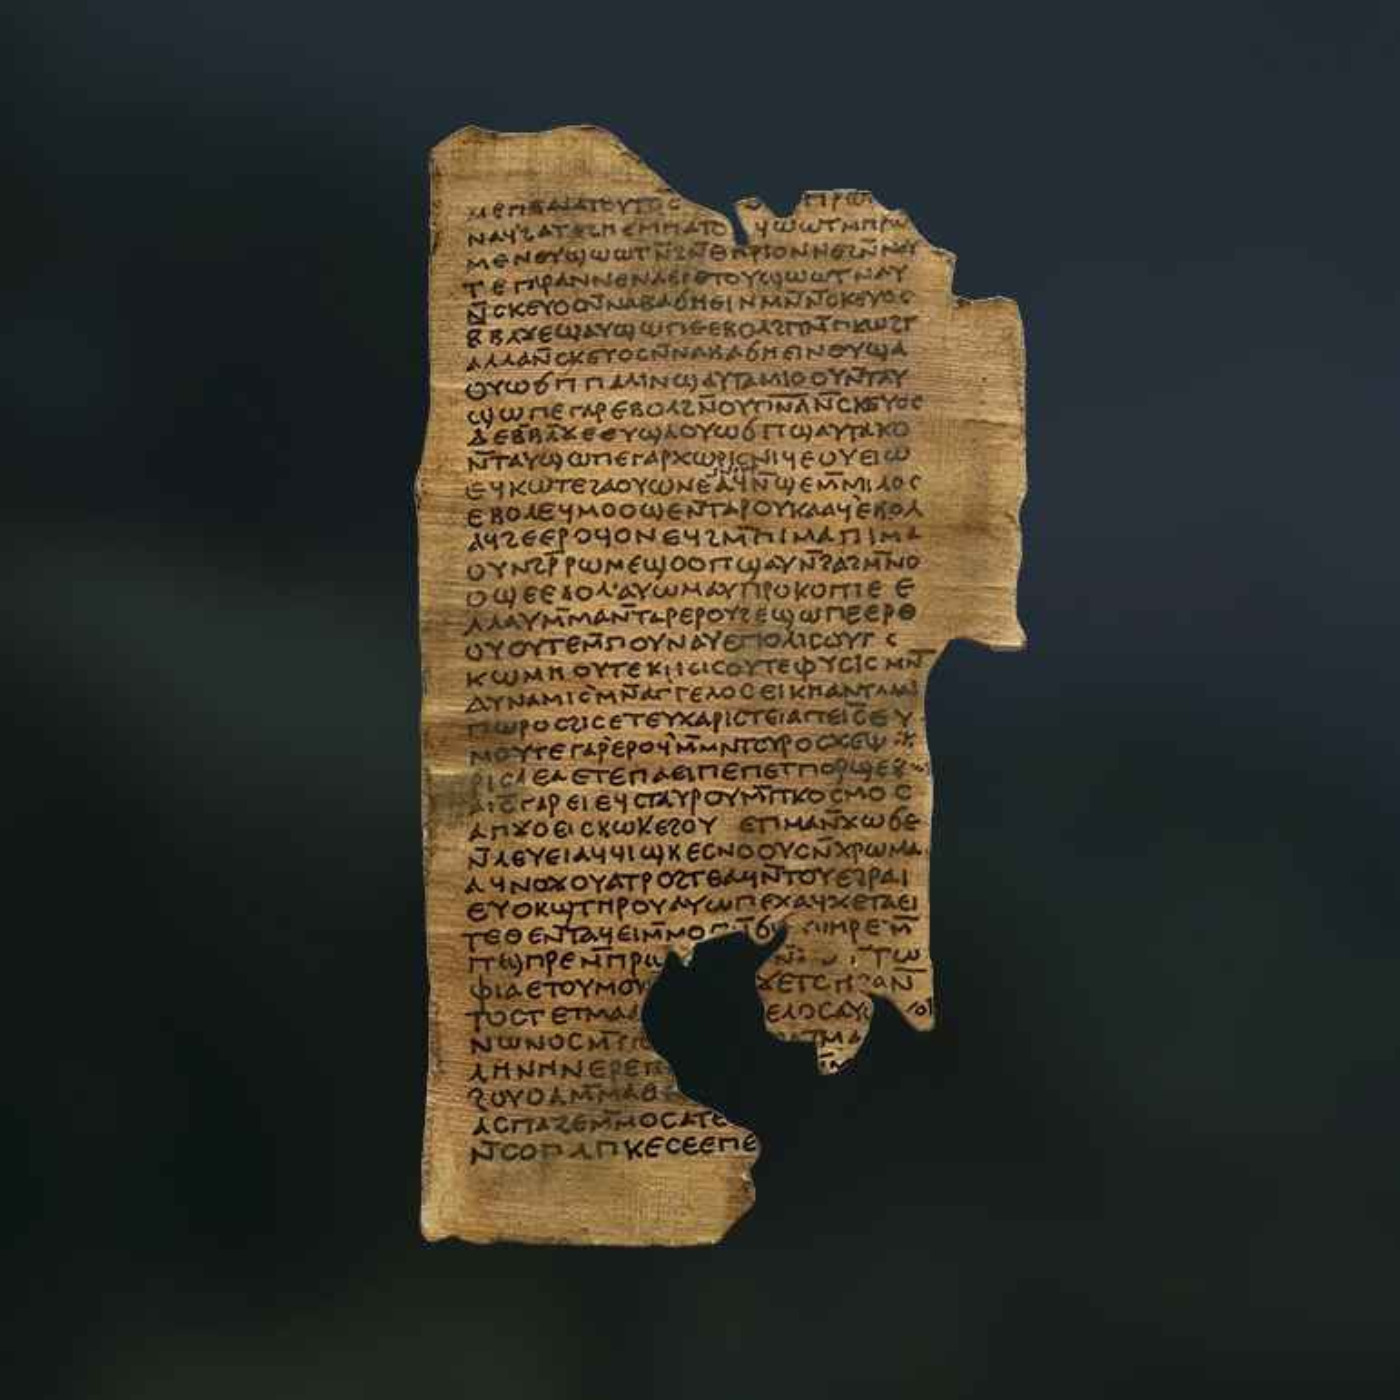 ⲇⲓⲁⲧⲟⲩⲧⲟ ⲥ ⲡⲣⲱ
ⲛⲁϥϩⲁⲧⲉϩⲏⲉⲙⲡⲁⲧⲟ ϣⲱⲱⲧⲙⲡⲣⲱ
ⲙⲉⲛⲉⲩϣⲱⲱⲧⲛ̄ϩⲛ̄ⲑⲏⲣⲓⲟⲛⲛⲉϩⲛ̄ⲛⲟⲩ
ⲧⲉⲅⲁⲣⲁⲛⲛⲉⲛⲁⲉⲓⲉⲧⲟⲩϣⲱⲱⲧⲛⲁⲩ
ⲛ̄ⲥⲕⲉⲩⲟⲥⲛ̄ⲛⲁⲃⲁϭⲏⲉⲓⲛⲙⲛ̄ⲛ̄ⲥⲕⲉⲩⲟⲥ
ⲃⲃⲗϫⲉϣⲁⲩϣⲱⲡⲉⲉⲃⲟⲗϩⲓⲧⲙ̄ⲡⲕⲱϩⲧ
ⲁⲗⲗⲁⲛ̄ⲥⲕⲉⲩⲟⲥⲛ̄ⲛⲁⲃⲁϭⲏⲉⲓⲛⲟⲩϣⲁ
ⲟⲩⲱϭⲡⲡⲁⲗⲓⲛϣⲁⲩⲧⲁⲙⲓⲟⲟⲩⲛ̄ⲧⲁⲩ
ϣⲱⲡⲉⲅⲁⲣⲉⲃⲟⲗϩⲛ̄ⲟⲩⲡ̄ⲛ̄ⲁ̄ⲛ̄ⲥⲕⲉⲩⲟⲥ
ⲇⲉⲃ̄ⲃⲗϫⲉⲉⲩϣⲁⲟⲩⲱϭⲡϣⲁⲩⲧⲁⲕⲟ
ⲛ̄ⲧⲁⲩϣⲱⲡⲉⲅⲁⲣⲭⲱⲣⲓⲥⲛⲓϥⲉⲟⲩⲉⲓⲱ
ⲉϥⲕⲱⲧⲉϩⲁⲟⲩⲱⲛⲉⲁϥⲛ̄ϣⲉⲙ̄ⲙⲓⲗⲟⲥ
ⲉⲃⲟⲗⲉϥⲙⲟⲟϣⲉⲛ̄ⲧⲁⲣⲟⲩⲕⲁⲁϥⲉⲃⲟⲗ
ⲁϥϩⲉⲉⲣⲟϥⲟⲛⲉϥϩⲙ̄ⲡⲓⲙⲁⲡⲓⲙⲁ
ⲟⲩⲛϩⲣ̄ⲣⲱⲙⲉϣⲟⲟⲡϣⲁⲩⲛ̄ϩⲁϩⲙ̄ⲙⲟ
ⲟϣⲉⲉⲃⲟⲗ'ⲁⲩⲱⲙⲁⲩⲡⲣⲟⲕⲟⲡⲧⲉ ⲉ
ⲗⲁⲁⲩⲙ̄ⲙⲁⲛ̄ⲧⲁⲣⲉⲣⲟⲩϩⲉϣⲱⲡⲉⲉⲣⲟ
ⲟⲩⲟⲩⲧⲉⲙ̄ⲡⲟⲩⲛⲁⲩⲉⲡⲟⲗⲓⲥⲟⲩⲧⲉ
ⲕⲱⲙⲏⲟⲩⲧⲉⲕⲧⲓⲥⲓⲥⲟⲩⲧⲉⲫⲩⲥⲓⲥⲙⲛ̄
ⲇⲩⲛⲁⲙⲓⲥⲙⲛ̄ⲁⲅⲅⲉⲗⲟⲥⲉⲓⲕⲏⲁⲛⲧⲁⲗⲁⲓ
ⲡⲱⲣⲟⲥϩⲓⲥⲉⲧⲉⲩⲭⲁⲣⲓⲥⲧⲉⲓⲁⲡⲉⲓ̅ⲥ̅ⲉⲩ
ⲙⲟⲩⲧⲉⲅⲁⲣⲉⲣⲟϥⲙ̄ⲙⲛ̄ⲧⲥⲩⲣⲟⲥϫⲉⲫⲁ
ⲣⲓⲥⲁⲑⲁⲉⲧⲉⲡⲁⲉⲓⲡⲉⲡⲉⲧⲡⲟⲣϣⲉⲃⲟⲗ
ⲁⲓ̅ⲥ̅ⲅⲁⲣⲉⲓⲉϥⲥⲧⲁⲩⲣⲟⲩⲙ̄ⲡⲕⲟⲥⲙⲟⲥ
ⲁⲡϫⲟⲉⲓⲥⲃⲱⲕⲉϩⲟⲩ ⲉⲡⲙⲁⲛ̄ϫⲱϭⲉ
ⲛ̄ⲗⲉⲩⲉⲓⲁϥϥⲓϣⲃⲉⲥⲛⲟⲟⲩⲥⲛ̄ⲭⲣⲱⲙⲁ
ⲁϥⲛⲟϫⲟⲩⲁⲧⲣⲟϩⲧⲉⲁϥⲛ̄ⲧⲟⲩⲉϩⲣⲁⲓ
ⲉⲩⲟⲃϣⲧⲏⲣⲟⲩⲁⲩⲱⲡⲉϫⲁϥϫⲉⲧⲁⲉⲓ
ⲧⲉⲑⲉⲛ̄ⲧⲁϥⲉⲓⲙ̄ⲙⲟⲥⲛ̄ϭⲓ ϣⲏⲣⲉⲙ̄
ⲡϣⲏⲣⲉⲙ̄ⲡⲣⲱ ⲧⲥⲟ
ⲫⲓⲁⲉⲧⲟⲩⲙⲟⲩ ϫⲉⲧⲥⲧ ⲁⲛ̄
ⲧⲟⲥⲧⲉⲧⲙⲁⲁ ⲉⲗⲟⲥⲁⲩ ⲟⲓ
ⲛⲱⲛⲟⲥⲙ̄ⲡ ⲙⲁ
ⲗⲏⲛⲏⲛⲉⲣⲉⲡ ⲙ̄
ϩⲟⲩⲟⲁⲙ̄ⲙⲁⲑ
ⲁⲥⲡⲁⲍⲉⲙ̄ⲙⲟⲥⲁⲧⲉ
ⲛ̄ⲥⲟⲡⲁⲡⲕⲉⲥⲉⲉⲡⲉ